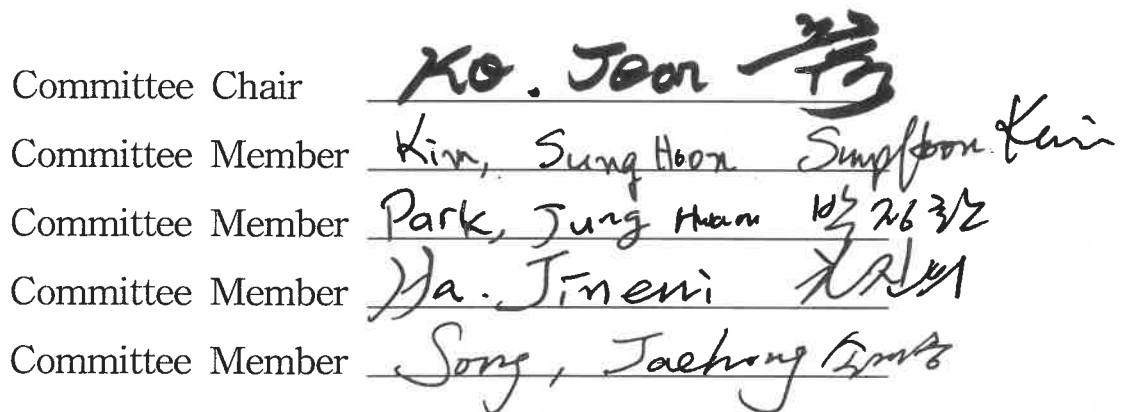 Committee Chair Ko. Joon
Committee Member Kim, Sung Hoon
Committee Member Park, Jung Hwan 박정환
Committee Member Ha. Jineui
Committee Member Song, Jaehong